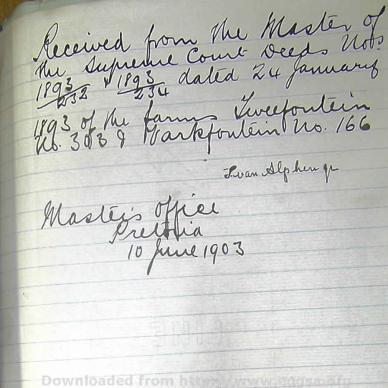 Received from the Master of
the Supreme Court Deeds Nos
1893/232 & 1893/234 dated 24 January
1893 of the farms Tweefontein
No. 303 & Varkfontein No. 166
Master's office
Pretoria
10 June 1903
Downloaded from